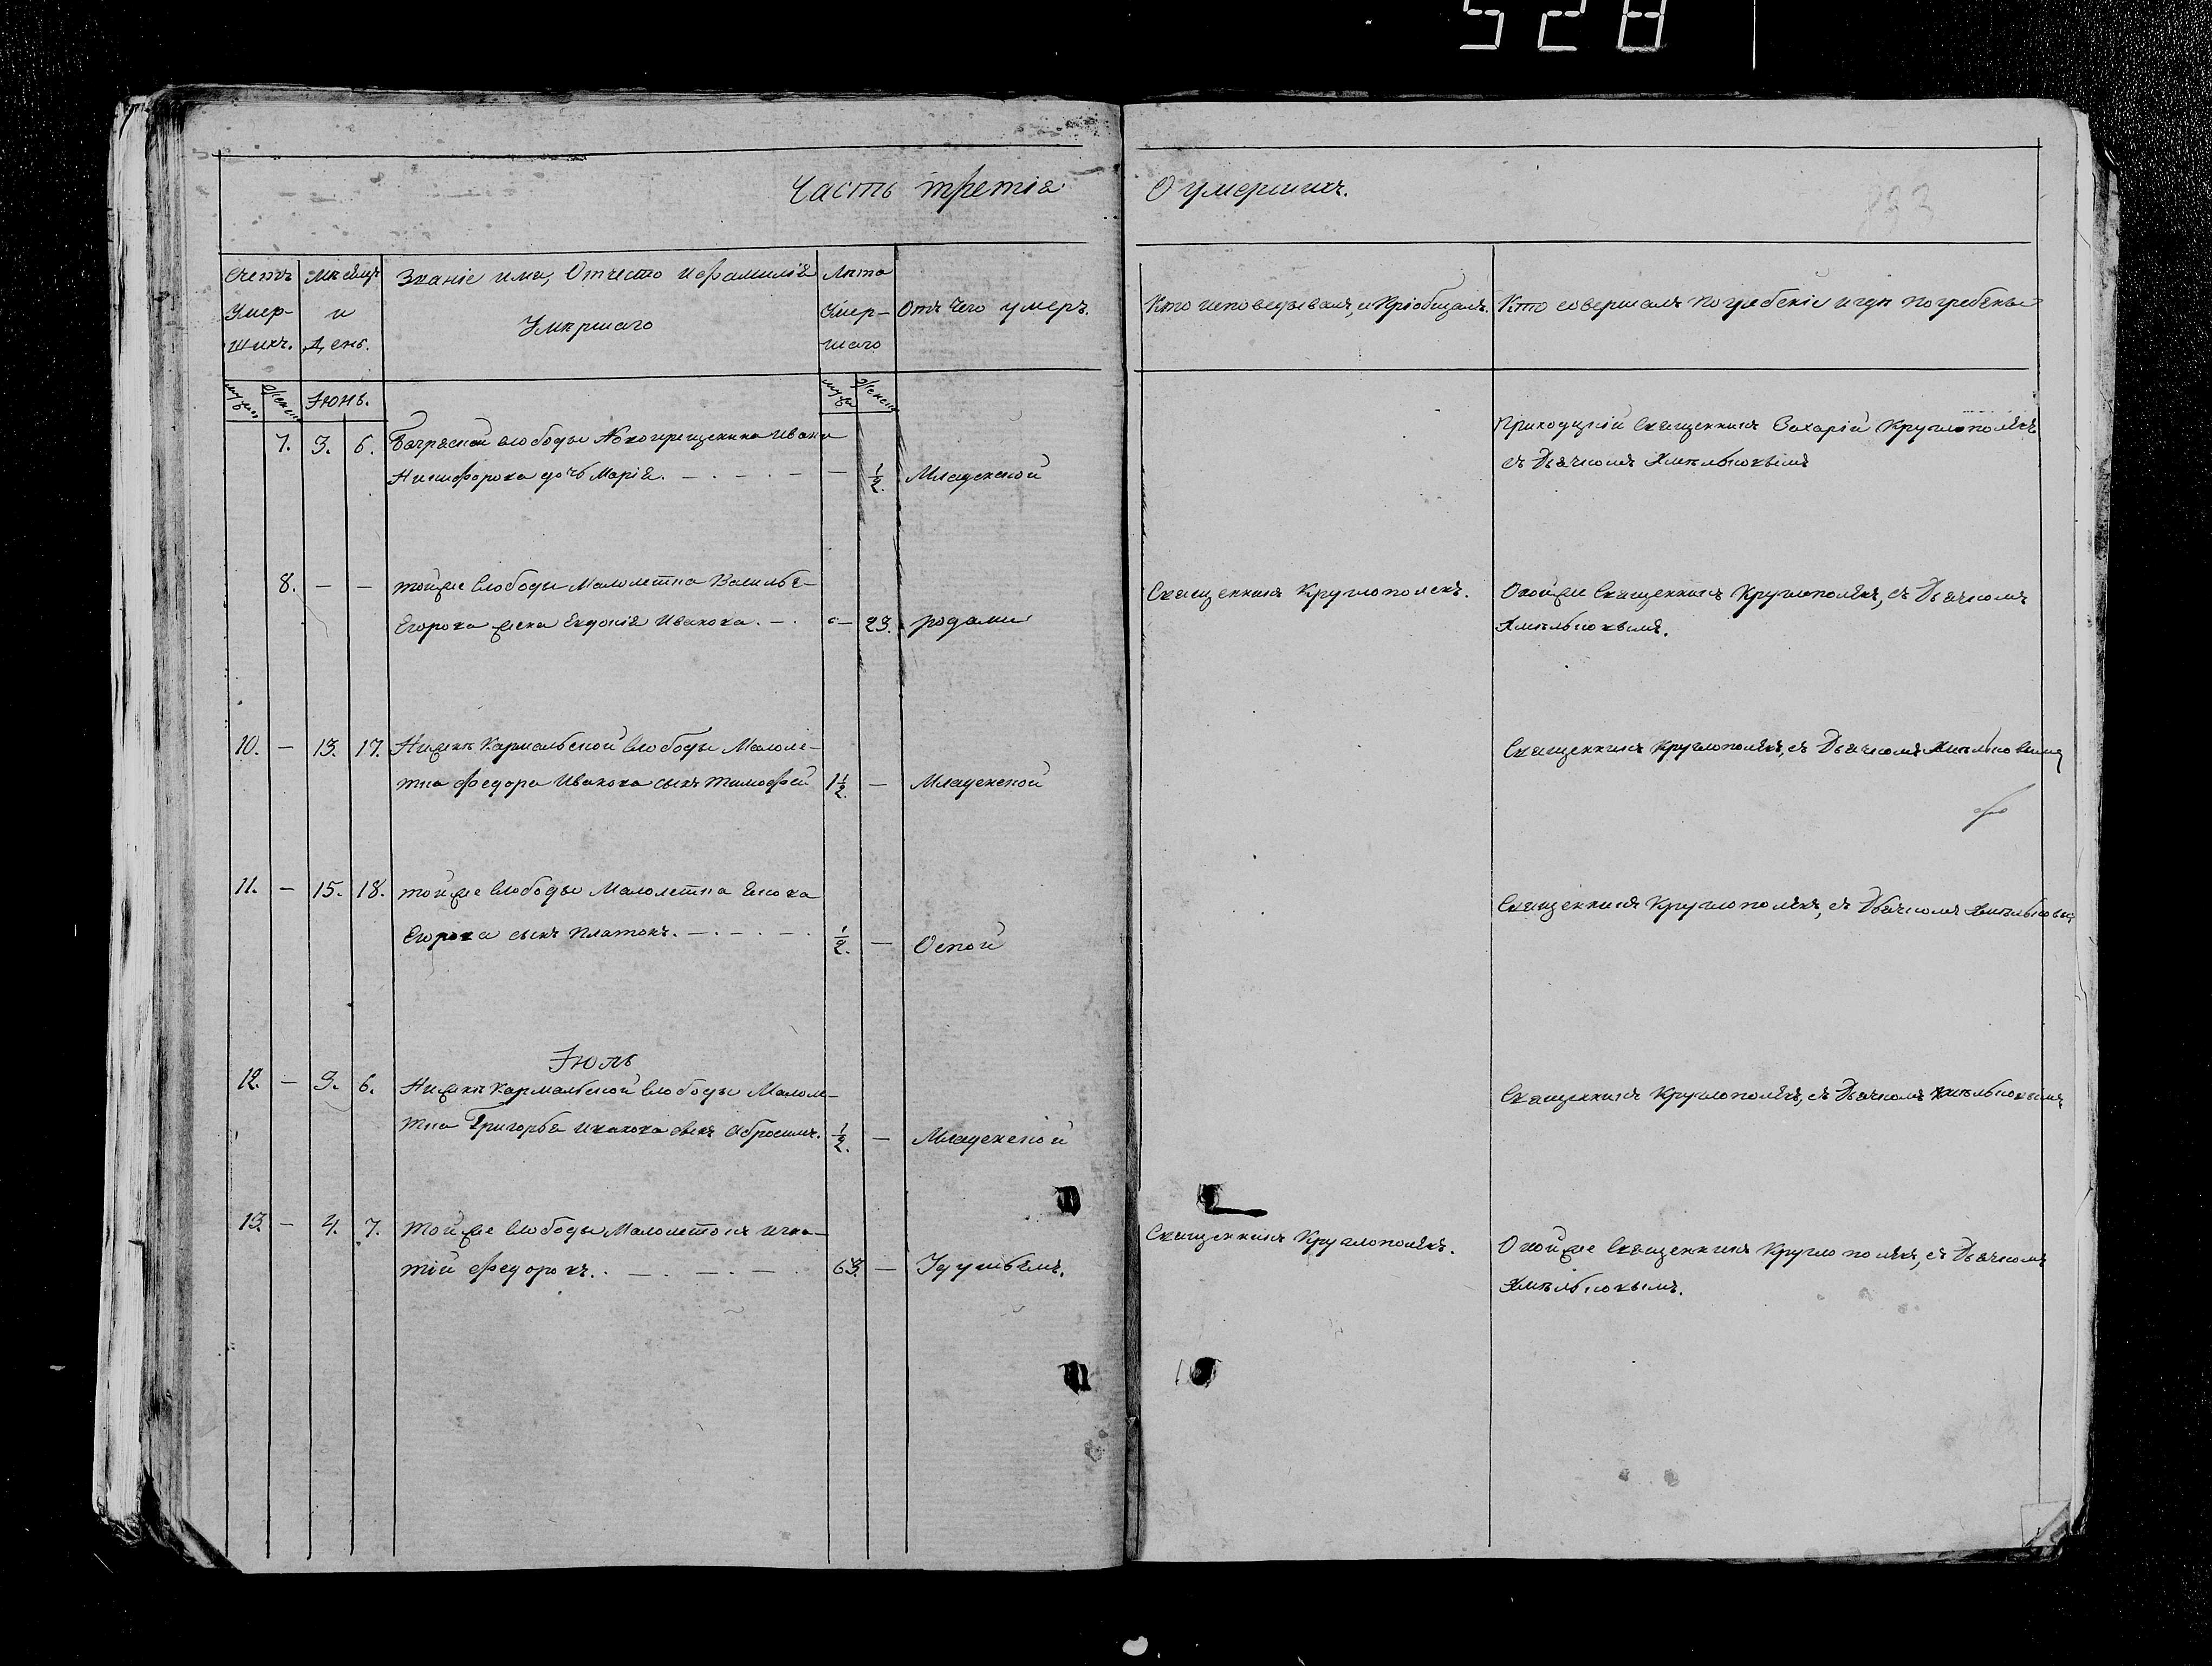 528
Часть третiя
О умершихъ.
893
Счетъ
Умер-
шихъ.
Мѣсяцъ
и
День.
Званiе имя, Отчество и фамилiя
Умѣршаго
Лѣта
Умер-
шаго
Отъ Чего умеръ.
Кто исповедывалъ, и Прiобщалъ.
Кто совершалъ погребенiе и гдѣ погребены
мужс
женск
Iюнь.
мужс
женск
7. 3. 6. Багряской слободы Новокрещенина Ивана
Никифорова дочь Марiя. — — 1/2. Младенской
Приходскiй Священникъ Захарiй Круглополевъ
съ Дьячкомъ Хмѣльновымъ
8. — — той же слободы Малолетка Василья
Егорова жена Евдокiя Иванова. — 23. родами
Священникъ Круглополевъ.
Оной же Священникъ Круглополевъ, съ Дьячкомъ
Хмѣльновымъ.
10. — 13. 17. Нижнѣ Кармальской слободы Малоле-
тка Федора Иванова сынъ Тимофей 1 1/2. — Младенской
Священникъ Круглополевъ, съ Дьячкомъ Хмѣльновымъ
11. — 15. 18. той же слободы Малолетка
Егорова сынъ Платонъ. — 1/2. — Оспой
Священникъ Круглополевъ, съ Дьячкомъ Хмѣльновы
Iюль
12. — 3. 6. Нижнѣ Кармальской слободы Малоле-
тка Григорья Иванова сынъ Абросимъ. 1/2. — Младенской
Священникъ Круглополевъ, съ Дьячкомъ Хмѣльновымъ
13. — 4. 7. той же слободы Малолетокъ Игна-
тiй Федоровъ. — 63. — Удушьемъ.
Священникъ Круглополевъ.
Оной же Священникъ Круглополевъ, съ Дьячкомъ
Хмѣльновымъ.